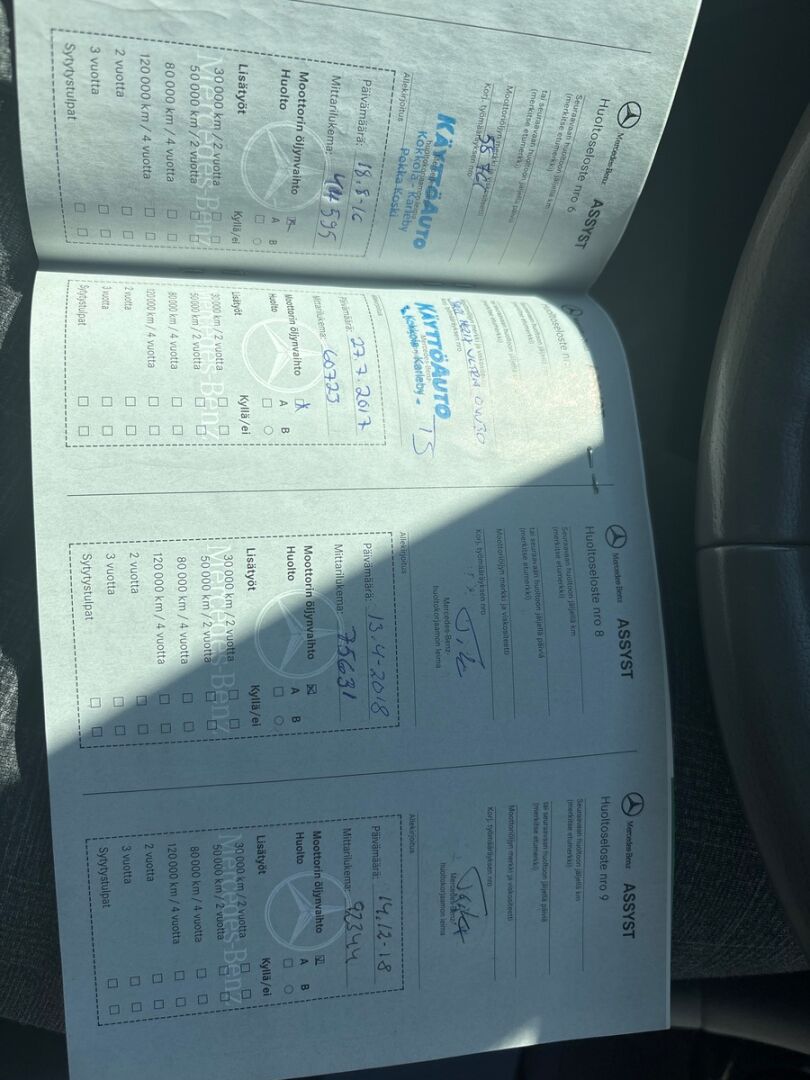 Mercedes-Benz ASSYST
Huoltoseloste nro 6
Seuraavaan huoltoon jäljellä km
(merkitse etumerkki)
tai seuraavaan huoltoon jäljellä päiviä
(merkitse etumerkki)
Korj. työmääräyksen nro
KÄYTTÖAUTO
Kokkola - Karleby
Pekka Koski
Allekirjoitus
Päivämäärä: 18.8-16
Mittarilukema: 44595
Moottorin öljynvaihto
Huolto A B
Lisätyöt Kyllä/ei
30 000 km / 2 vuotta
50 000 km / 2 vuotta
80 000 km / 4 vuotta
120 000 km / 4 vuotta
2 vuotta
3 vuotta
Sytytystulpat
Mercedes-Benz
KÄYTTÖAUTO
Kokkola - Karleby
Allekirjoitus
Päivämäärä: 27.7.2017
Mittarilukema: 60723
Moottorin öljynvaihto
Huolto A B
Lisätyöt Kyllä/ei
30 000 km / 2 vuotta
50 000 km / 2 vuotta
80 000 km / 4 vuotta
120 000 km / 4 vuotta
2 vuotta
3 vuotta
Sytytystulpat
Mercedes-Benz
Mercedes-Benz ASSYST
Huoltoseloste nro 8
Seuraavaan huoltoon jäljellä km
(merkitse etumerkki)
tai seuraavaan huoltoon jäljellä päiviä
(merkitse etumerkki)
Moottoriöljyn merkki ja viskositeetti
Korj. työmääräyksen nro
Mercedes-Benz
huoltokorjaamon leima
Allekirjoitus
Päivämäärä: 13.4-2018
Mittarilukema: 75631
Moottorin öljynvaihto
Huolto A B
Lisätyöt Kyllä/ei
30 000 km / 2 vuotta
50 000 km / 2 vuotta
80 000 km / 4 vuotta
120 000 km / 4 vuotta
2 vuotta
3 vuotta
Sytytystulpat
Mercedes-Benz
Mercedes-Benz ASSYST
Huoltoseloste nro 9
Seuraavaan huoltoon jäljellä km
(merkitse etumerkki)
tai seuraavaan huoltoon jäljellä päiviä
(merkitse etumerkki)
Moottoriöljyn merkki ja viskositeetti
Korj. työmääräyksen nro
Mercedes-Benz
huoltokorjaamon leima
Allekirjoitus
Päivämäärä: 14.12-18
Mittarilukema: 92344
Moottorin öljynvaihto
Huolto A B
Lisätyöt Kyllä/ei
30 000 km / 2 vuotta
50 000 km / 2 vuotta
80 000 km / 4 vuotta
120 000 km / 4 vuotta
2 vuotta
3 vuotta
Sytytystulpat
Mercedes-Benz